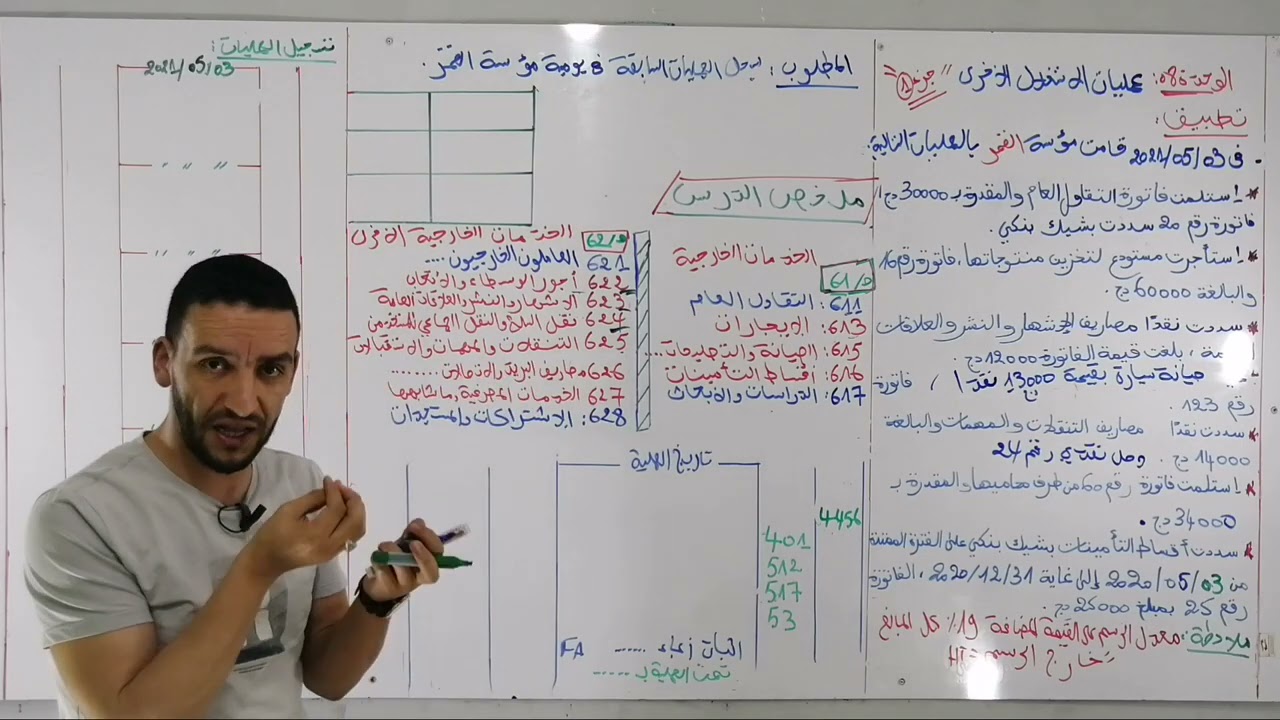 الوحدة 08: عمليات الاستغلال الأخرى "جزء 1"
تطبيق:
في 2021/05/03 قامت مؤسسة القمر بالعمليات التالية:
* استلمت فاتورة التقاول العام والمقدرة بـ 30000 دج
فاتورة رقم 20 سددت بشيك بنكي.
* استأجرت مستودع لتخزين منتوجاتها، فاتورة رقم 16
والبالغة 60000 دج.
* سددت نقدا مصاريف الإشهار والنشر والعلاقات
، بلغت قيمة الفاتورة 12000 دج.
صيانة سيارة بقيمة 13000 نقدا، فاتورة
رقم 123.
* سددت نقدا مصاريف التنقلات والمهمات والبالغة
14000 دج. وصل نقدي رقم 24
* استلمت فاتورة رقم 60 من طرف محاميها والمقدرة بـ
34000 دج.
* سددت أقساط التأمينات بشيك بنكي على الفترة الممتدة
من 2020/05/03 إلى غاية 2020/12/31، الفاتورة
رقم 25 بمبلغ 25000 دج.
ملاحظة: معدل الرسم على القيمة المضافة 19% كل المبالغ
خارج الرسم HT
المطلوب: سجل العمليات السابقة في يومية مؤسسة القمر.
ملخص الدرس
الخدمات الخارجية
61/ح
611: التقاول العام
613: الإيجارات
615: الصيانة والتصليحات...
616: أقساط التأمينات
617: الدراسات والأبحاث
62/ح الخدمات الخارجية الأخرى
621 العاملون الخارجيون....
622 أجور الوسطاء والأتعاب
623 الإشهار والنشر والعلاقات العامة
624 نقل السلع والنقل الجماعي للمستخدمين
625 التنقلات والمهمات والاستقبالات
626 مصاريف البريد والاتصالات........
627 الخدمات المصرفية وما شابهها
628: الاشتراكات والمستجدات
تاريخ العملية
4456
401
512
517
53
اثبات زعماء ...... FA
تمت العملية بـ......
تسجيل العمليات:
2021/05/03
" " "
" " "